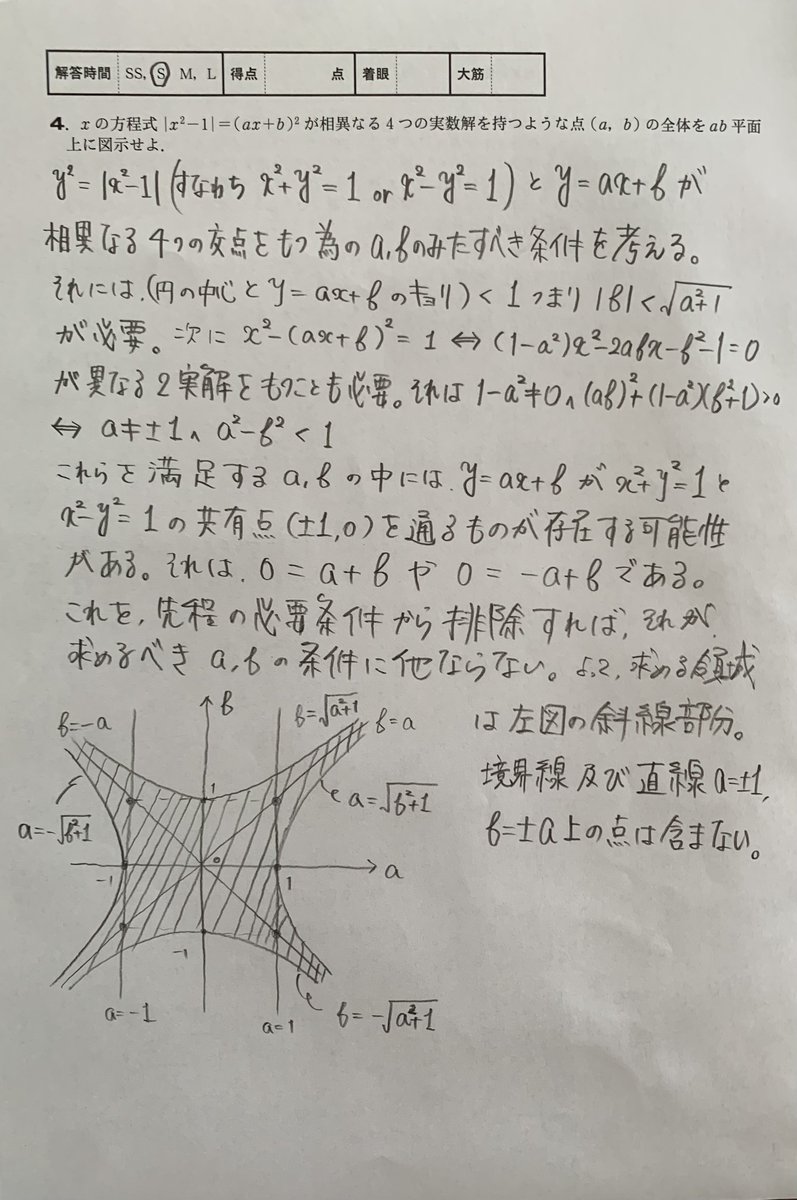 解答時間 SS, S M, L 得点 点 着眼 大筋
4. xの方程式 |x²−1|=(ax+b)² が相異なる4つの実数解を持つような点(a, b)の全体をab平面
上に図示せよ.
y²=|x²−1| (すなわち x²+y²=1 or x²−y²=1) と y=ax+b が
相異なる4つの交点をもつ為のa,bのみたすべき条件を考える。
それには,(円の中心と y=ax+b のキョリ)<1 つまり |b|<√(a²+1)
が必要。次に x²−(ax+b)²=1 ⇔ (1−a²)x²−2abx−b²−1=0
が異なる2実解をもつことも必要。それは 1−a²≠0 ∧ (ab)²+(1−a²)(b²+1)>0
⇔ a≠±1 ∧ a²−b²<1
これらを満足するa,bの中には, y=ax+b が x²+y²=1 と
x²−y²=1 の共有点(±1,0)を通るものが存在する可能性
がある。それは, 0=a+b や 0=−a+b である。
これを,先程の必要条件から排除すれば,それが,
求めるべき a,b の条件に他ならない。よって,求める領域
は左図の斜線部分。
境界線及び直線a=±1,
b=±a上の点は含まない。
b=−a
b
b=√(a²+1)
b=a
1
a=√(b²+1)
a=−√(b²+1)
−1
0
1
a
−1
a=−1
a=1
b=−√(a²+1)